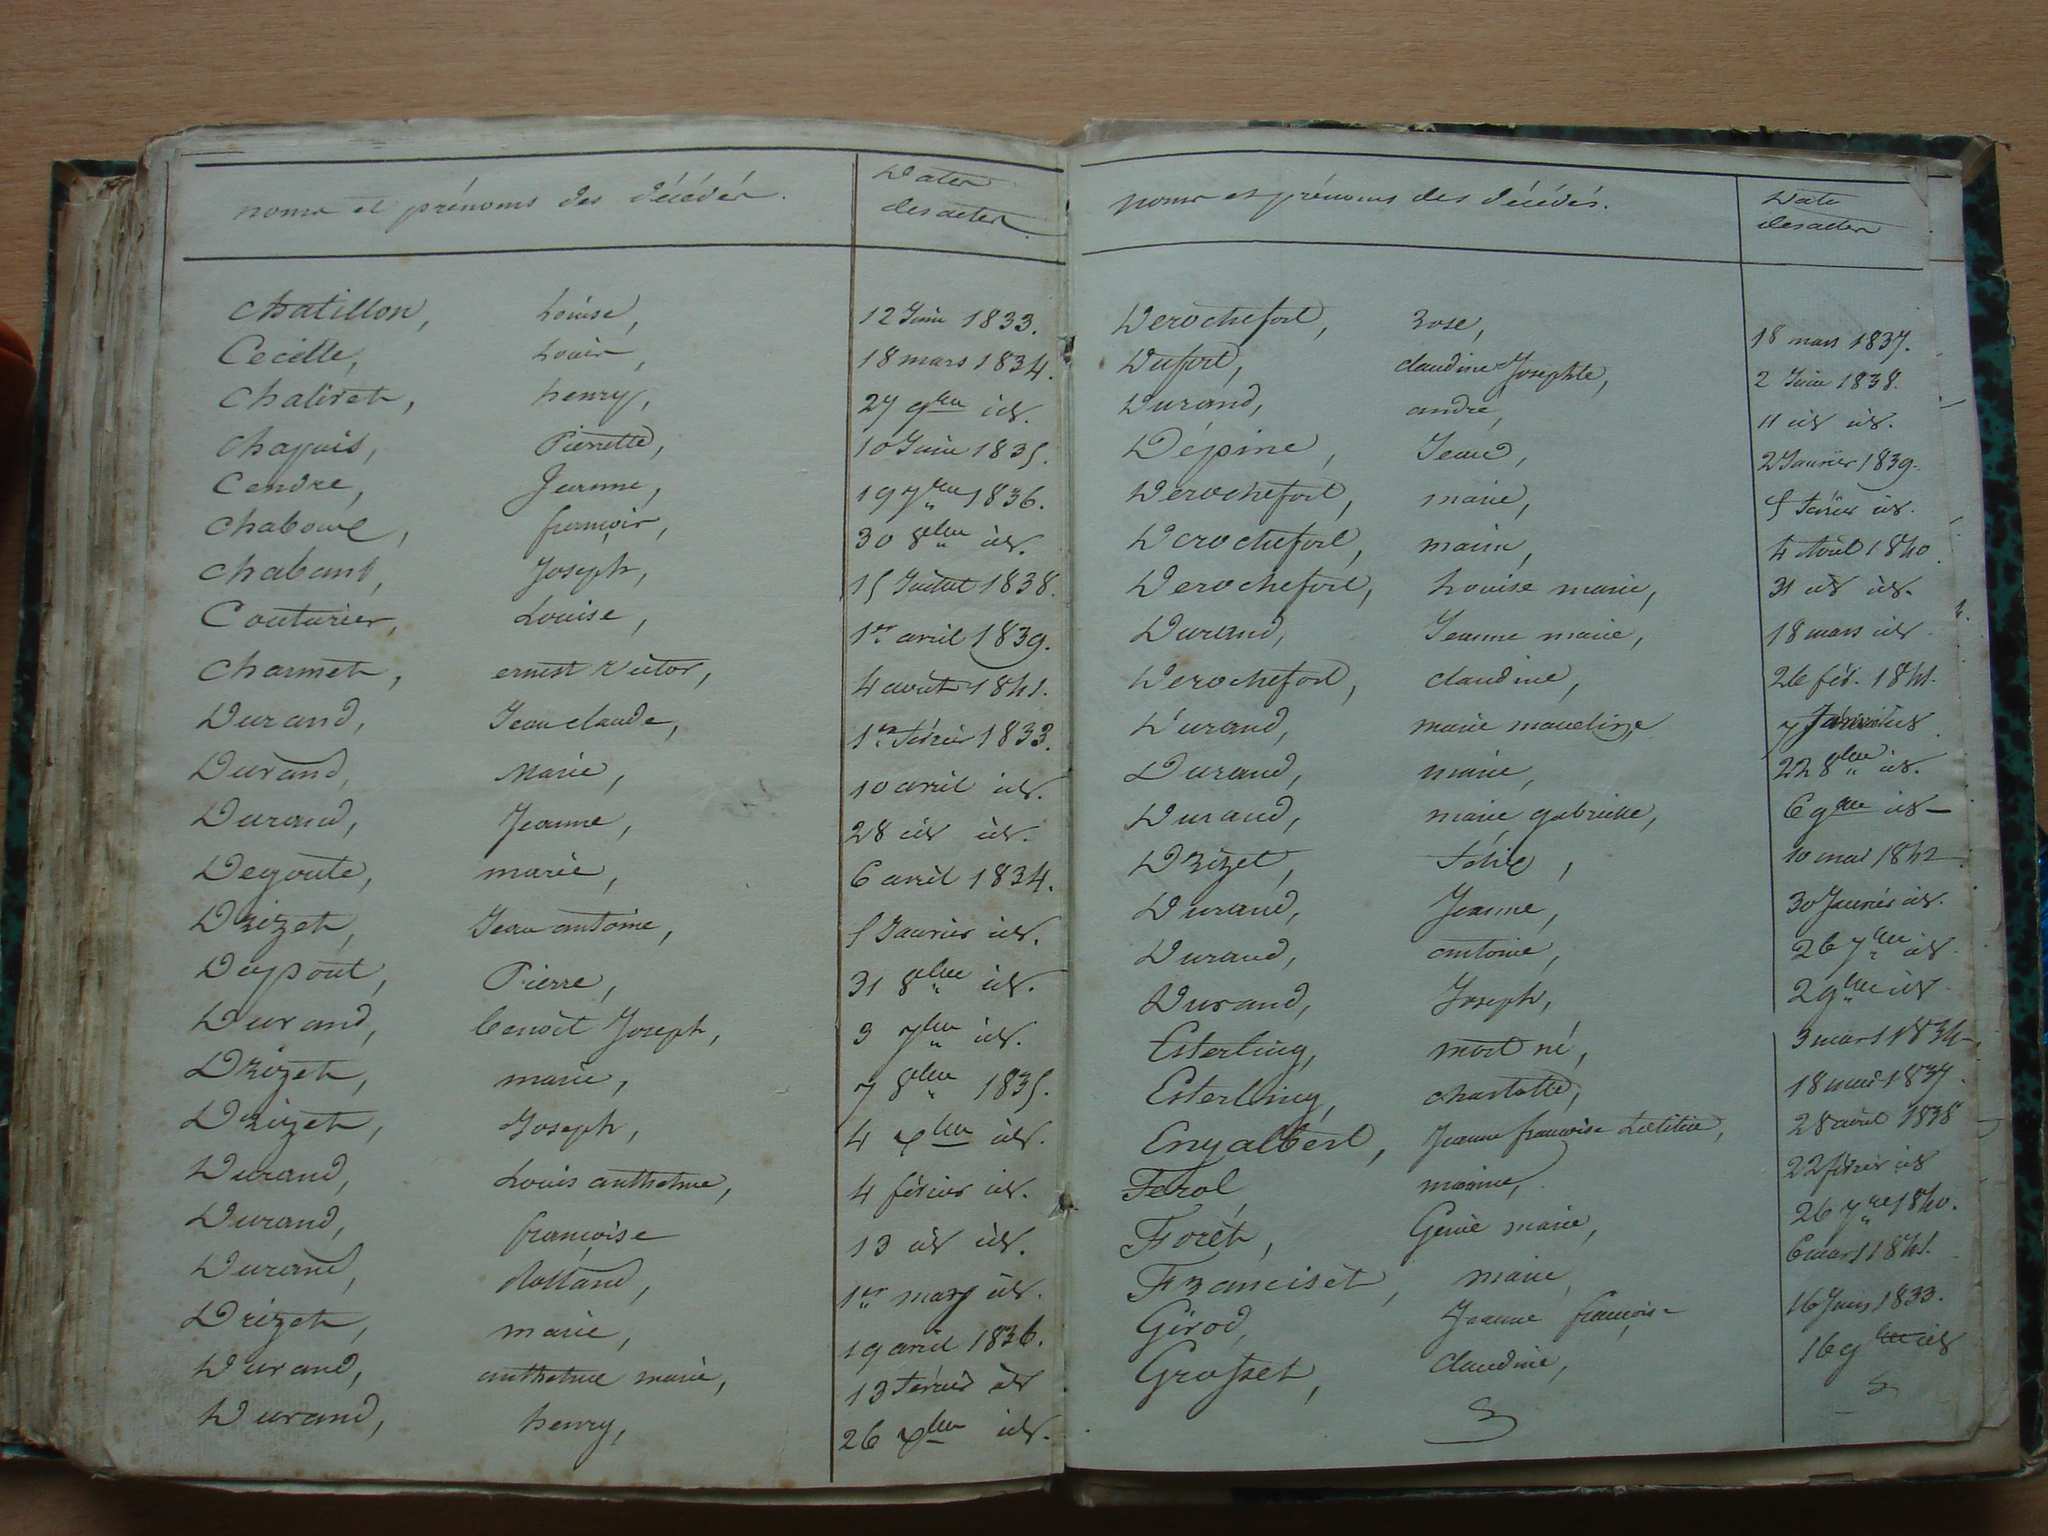 noms et prénoms des décédés.
Dates
des actes.
chatillon, Louise, 12 Juin 1833.
Cecitte, Louis, 18 mars 1834.
Chaliret, henry, 27 9bre id.
chapuis, Pierrette, 10 Juin 1835.
Cendre, Jeanne, 19 7bre 1836.
françois, 30 8bre id.
chabant, Joseph, 15 Juillet 1838.
Couturier, Louise, 1er avril 1839.
charmet, ernest victor, 4 août 1841.
Durand, Jean claude, 1er février 1833.
Durand, Marie, 10 avril id.
Durand, Jeanne, 28 id id.
Degoute, marie, 6 avril 1834.
Drizet, Jean antoine, 5 Janvier id.
Dupont, Pierre, 31 8bre id.
Durand, benoit Joseph, 3 7bre id.
Drizet, marie, 7 8bre 1835.
Drizet, Joseph, 4 xbre id.
Durand, Louis anthelme, 4 février id.
Durand, françoise 13 id id.
Durand, Rolland, 1er mars id.
Drizet, marie, 19 avril 1836.
Durand, anthelme marie, 13 février id
Durand, henry, 26 xbre id.
noms et prénoms des décédés.
Date
des actes
Derochefort, rose, 18 mars 1837.
Dufort, claudine Josephte, 2 Juin 1838.
Durand, andré, 11 id id.
Dépine, Jean, 2 Janvier 1839.
Derochefort, marie, 5 février id.
Derochefort, 4 Avril 1840.
Derochefort, Louise marie, 31 id id.
Durand, Jeanne marie, 18 mars id.
Derochefort, claudine, 26 fév. 1841.
Durand, marie 7
Durand, marie, 22 8bre id.
Durand, marie gabrielle, 6 9bre id
Drizet, Félix, 10 mai 1842
Durand, Jeanne, 30 Janvier id.
Durand, antoine, 26 7bre id.
Durand, Joseph, 2 9bre id
Esterling, mort né, 3 mars 1834
Esterling, charlotte, 18 mai 1837.
Engalbert, Jeanne françoise Lœtitia, 28 avril 1838
Férol, 22 février id
Forêt, Génie marie, 26 7bre 1840.
Franciset, marie, 6 mars 1841.
Girod, Jeanne françoise 16 Juin 1833.
Grosset, claudine, 16 9bre id